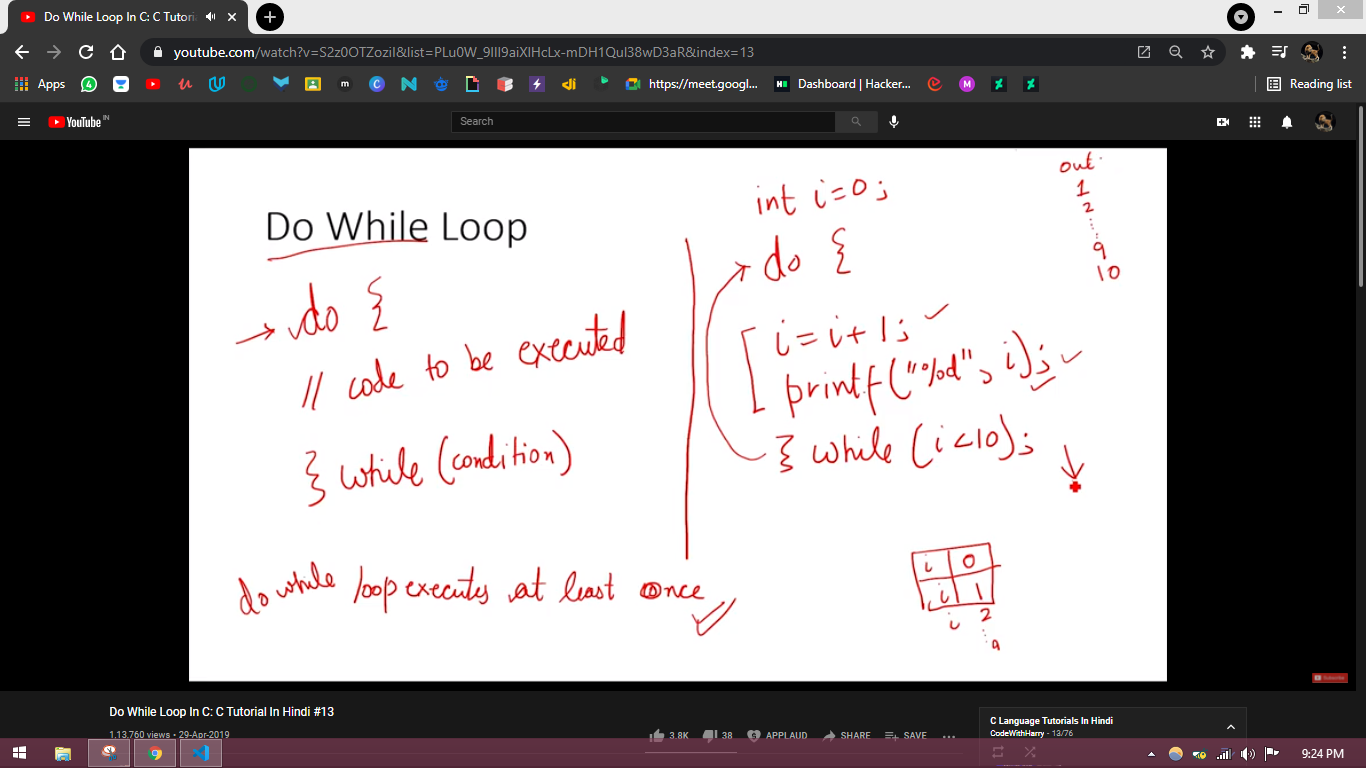 Do While Loop In C: C Tutori
youtube.com/watch?v=S2z0OTZoziI&list=PLu0W_9lII9aiXlHcLx-mDH1Qul38wD3aR&index=13
Apps
https://meet.googl...
Dashboard | Hacker...
Reading list
YouTube IN
Search
Do While Loop
do {
// code to be executed
} while (condition)
do while loop executes at least once
int i=0;
do {
i = i + 1;
printf("%d", i);
} while (i<10);
out
1
2
9
10
i 0
i 1
i 2
9
Subscribe
Do While Loop In C: C Tutorial In Hindi #13
1,13,760 views • 29-Apr-2019
3.8K
38
APPLAUD
SHARE
SAVE
C Language Tutorials In Hindi
CodeWithHarry - 13/76
9:24 PM